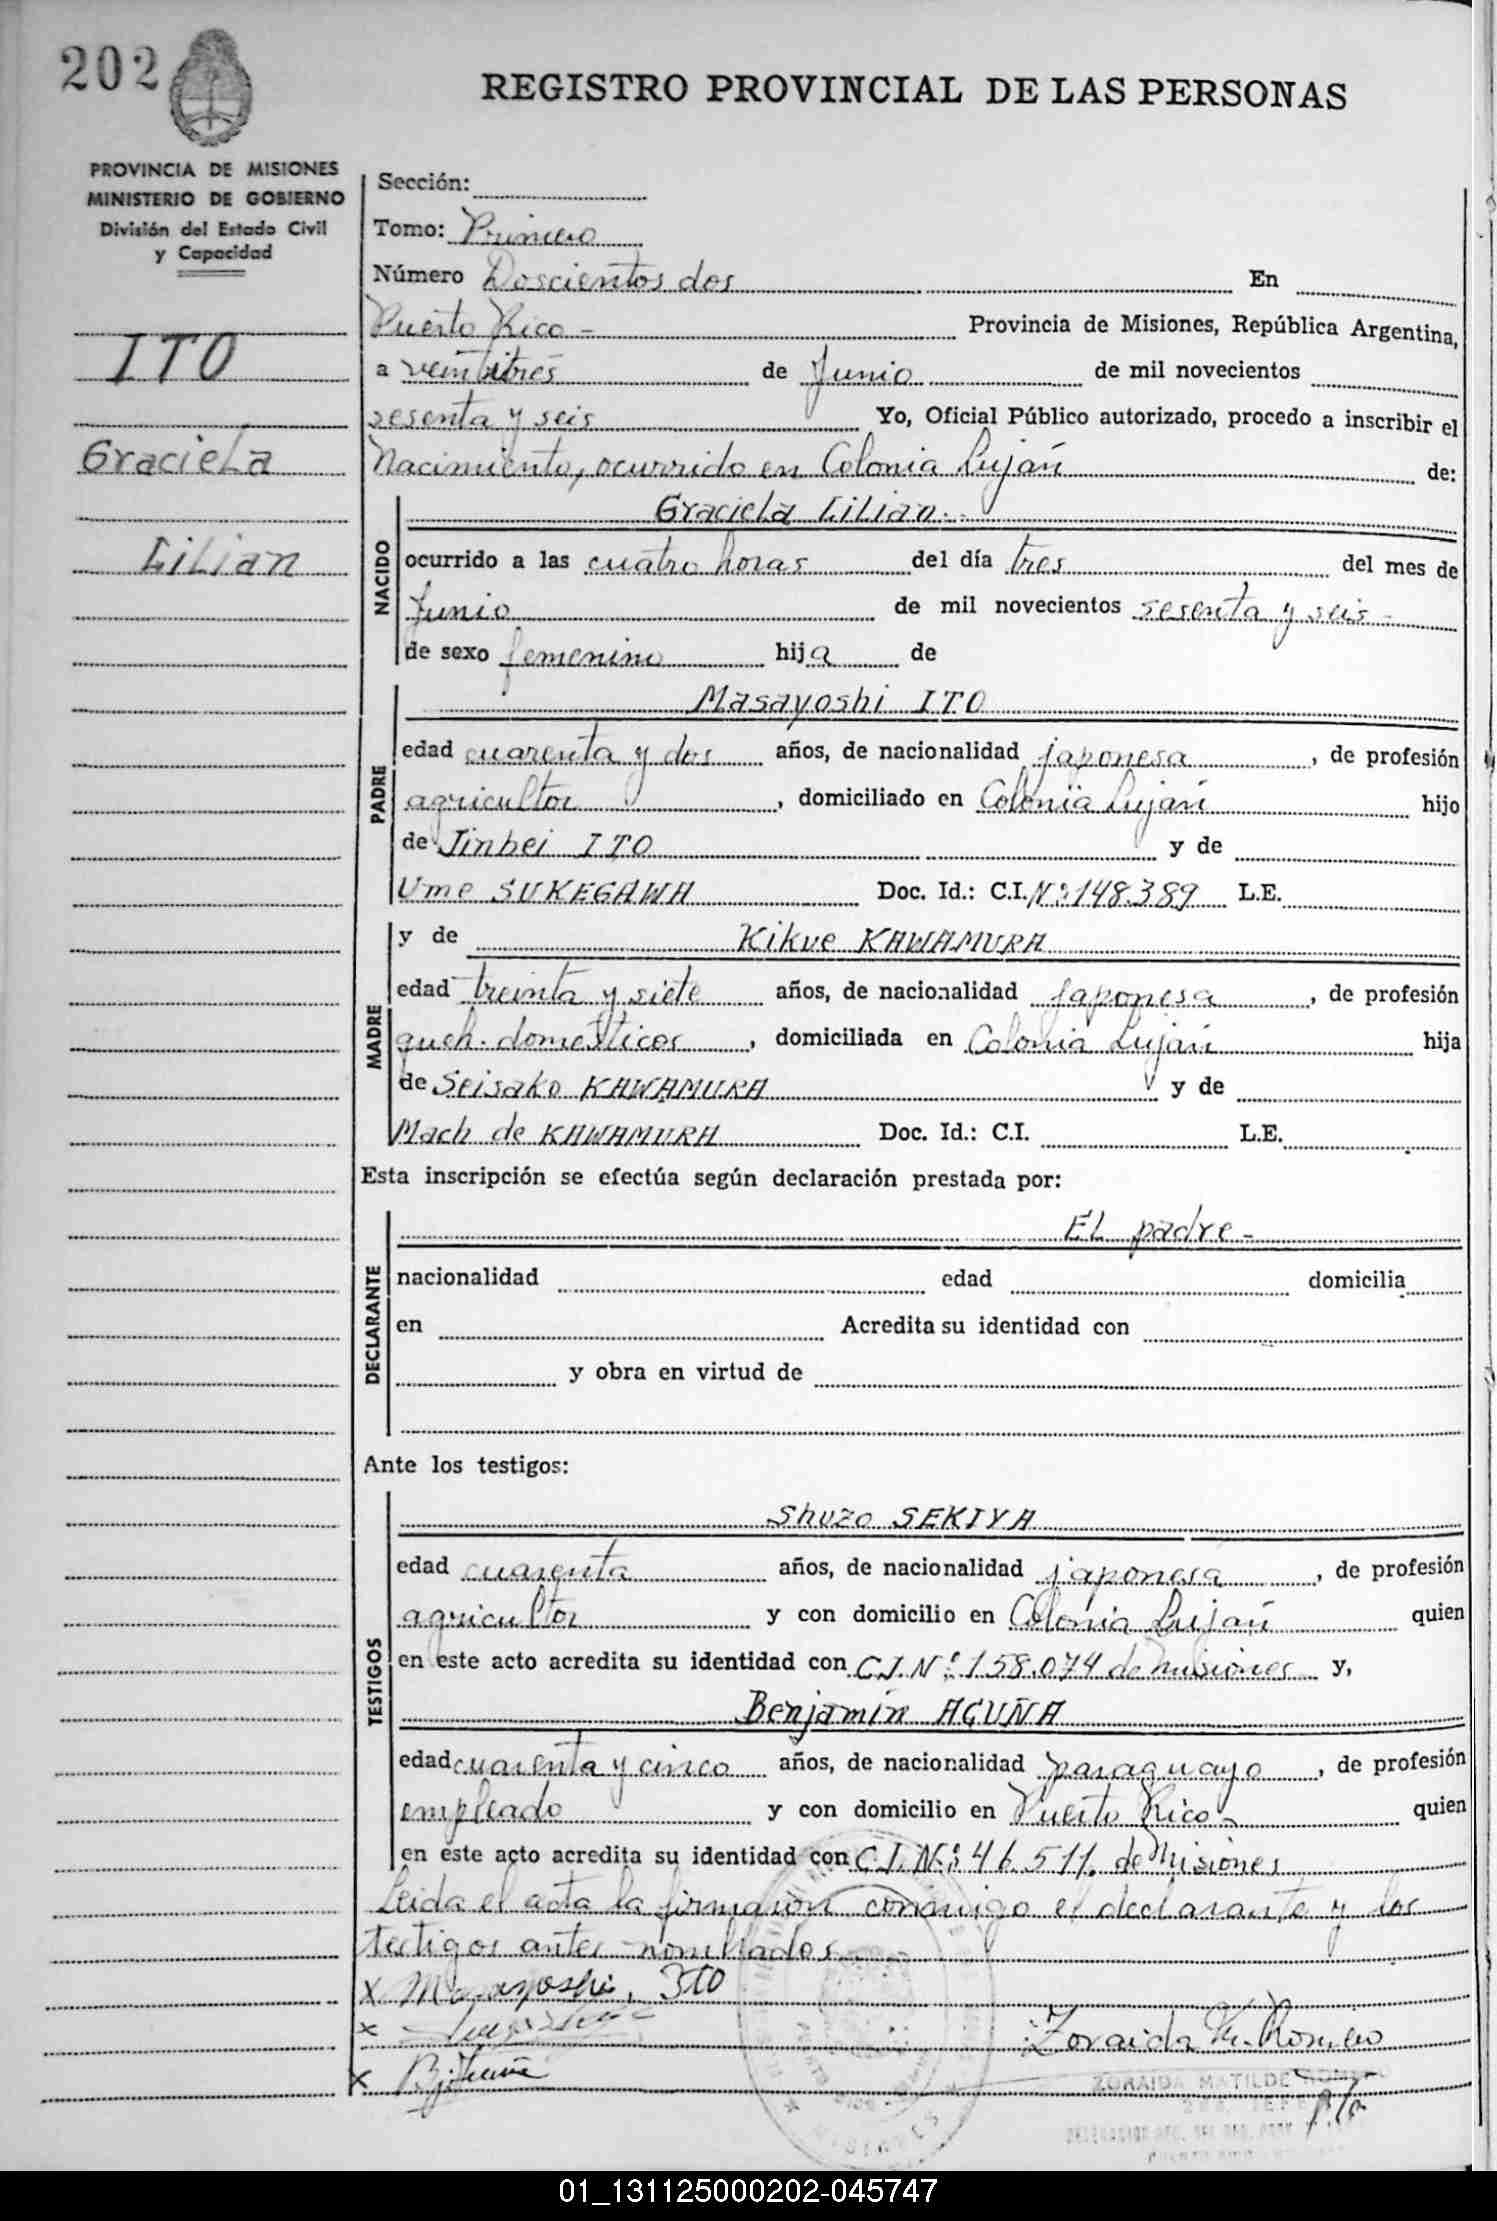 202
REGISTRO PROVINCIAL DE LAS PERSONAS
PROVINCIA DE MISIONES
MINISTERIO DE GOBIERNO
División del Estado Civil
y Capacidad
ITO
Graciela
Lilian
Sección:
Tomo: Primero
Número Doscientos dos En
Puerto Rico - Provincia de Misiones, República Argentina,
a veintitres de Junio de mil novecientos
sesenta y seis Yo, Oficial Público autorizado, procedo a inscribir el
Nacimiento, ocurrido en Colonia Luján de:
NACIDO
Graciela Lilian.-
ocurrido a las cuatro horas del día tres del mes de
Junio de mil novecientos sesenta y seis -
de sexo femenino hija de
PADRE
Masayoshi ITO
edad cuarenta y dos años, de nacionalidad japonesa, de profesión
agricultor, domiciliado en Colonia Luján hijo
de Jinbei ITO y de
Ume SUKEGAWA Doc. Id.: C.I. Nº: 148.389 L.E.
MADRE
y de Kikue KAWAMURA
edad treinta y siete años, de nacionalidad japonesa, de profesión
queh. domésticos, domiciliada en Colonia Luján hija
de Seisako KAWAMURA y de
Mach de KAWAMURA Doc. Id.: C.I. L.E.
Esta inscripción se efectúa según declaración prestada por:
DECLARANTE
EL padre -
nacionalidad edad domicilia
en Acredita su identidad con
y obra en virtud de
Ante los testigos:
TESTIGOS
Shuzo SEKIYA
edad cuarenta años, de nacionalidad japonesa, de profesión
agricultor y con domicilio en Colonia Luján quien
en este acto acredita su identidad con C.I. Nº: 158.074 de Misiones y,
Benjamín ACUÑA
edad cuarenta y cinco años, de nacionalidad paraguayo, de profesión
empleado y con domicilio en Puerto Rico - quien
en este acto acredita su identidad con C.I. Nº: 46.511. de Misiones
Leida el acta la firmaron conmigo el declarante y los
testigos antes nombrados
x Masayoshi, ITO
x
x
Zoraida M. Romero
ZORAIDA MATILDE ROMERO
01_131125000202-045747